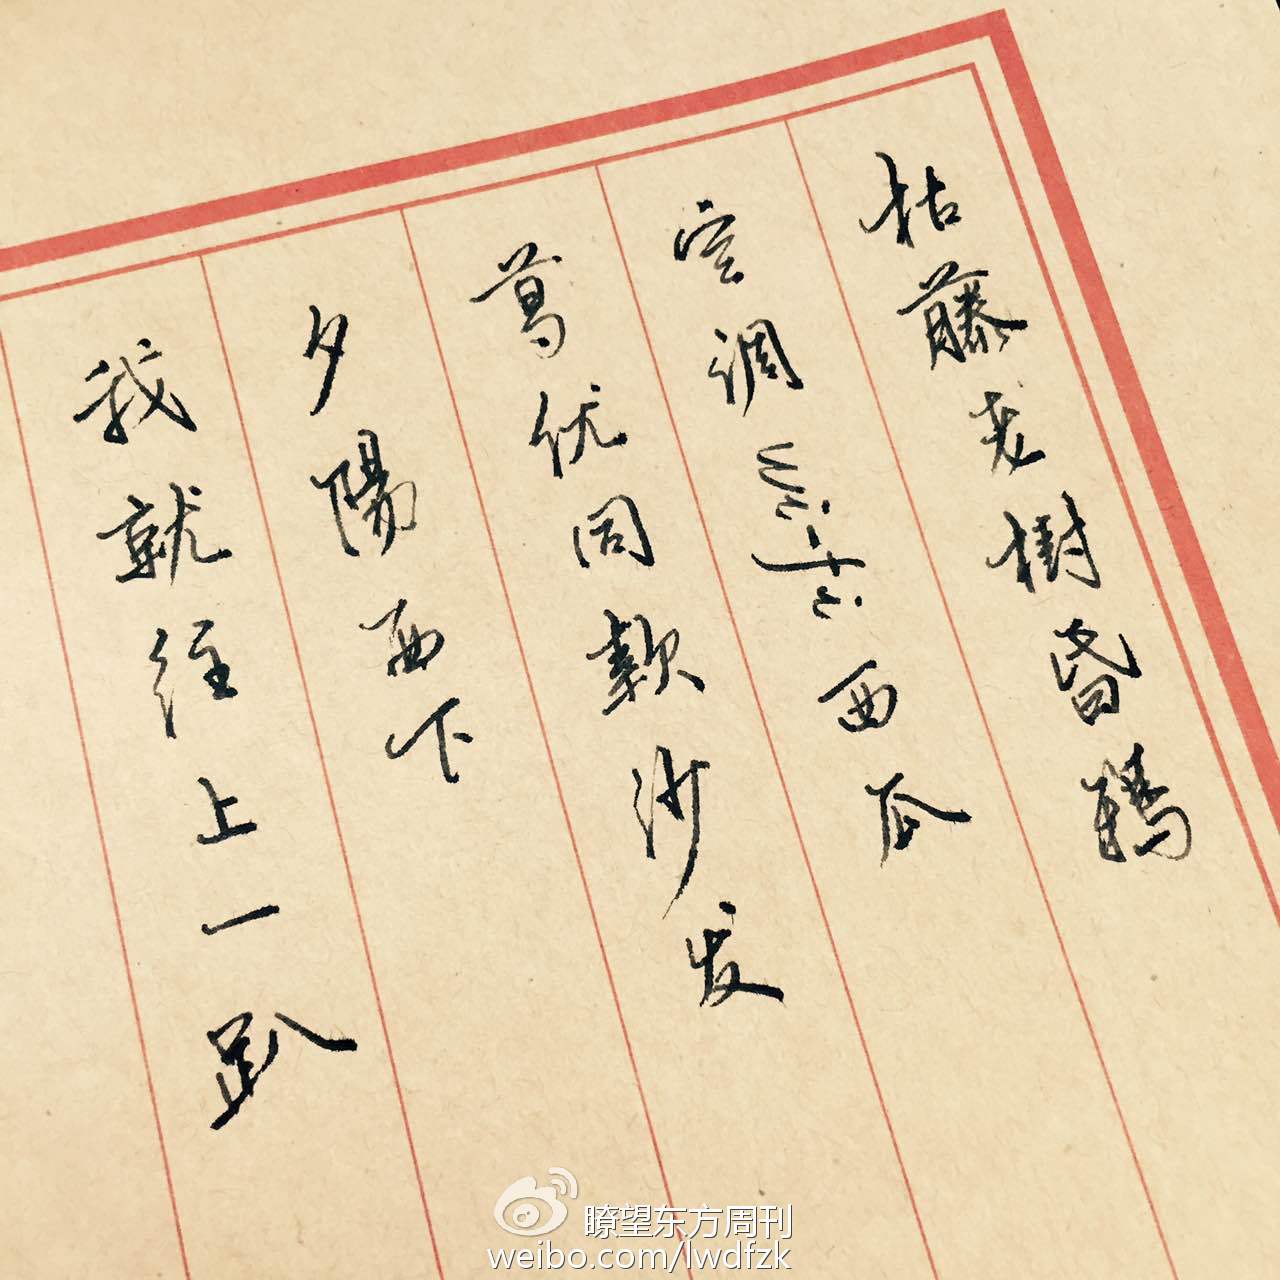 枯藤老樹昏鴉
空调WiFi西瓜
葛优同款沙发
夕陽西下
我就往上一趴
瞭望东方周刊
weibo.com/lwdfzk